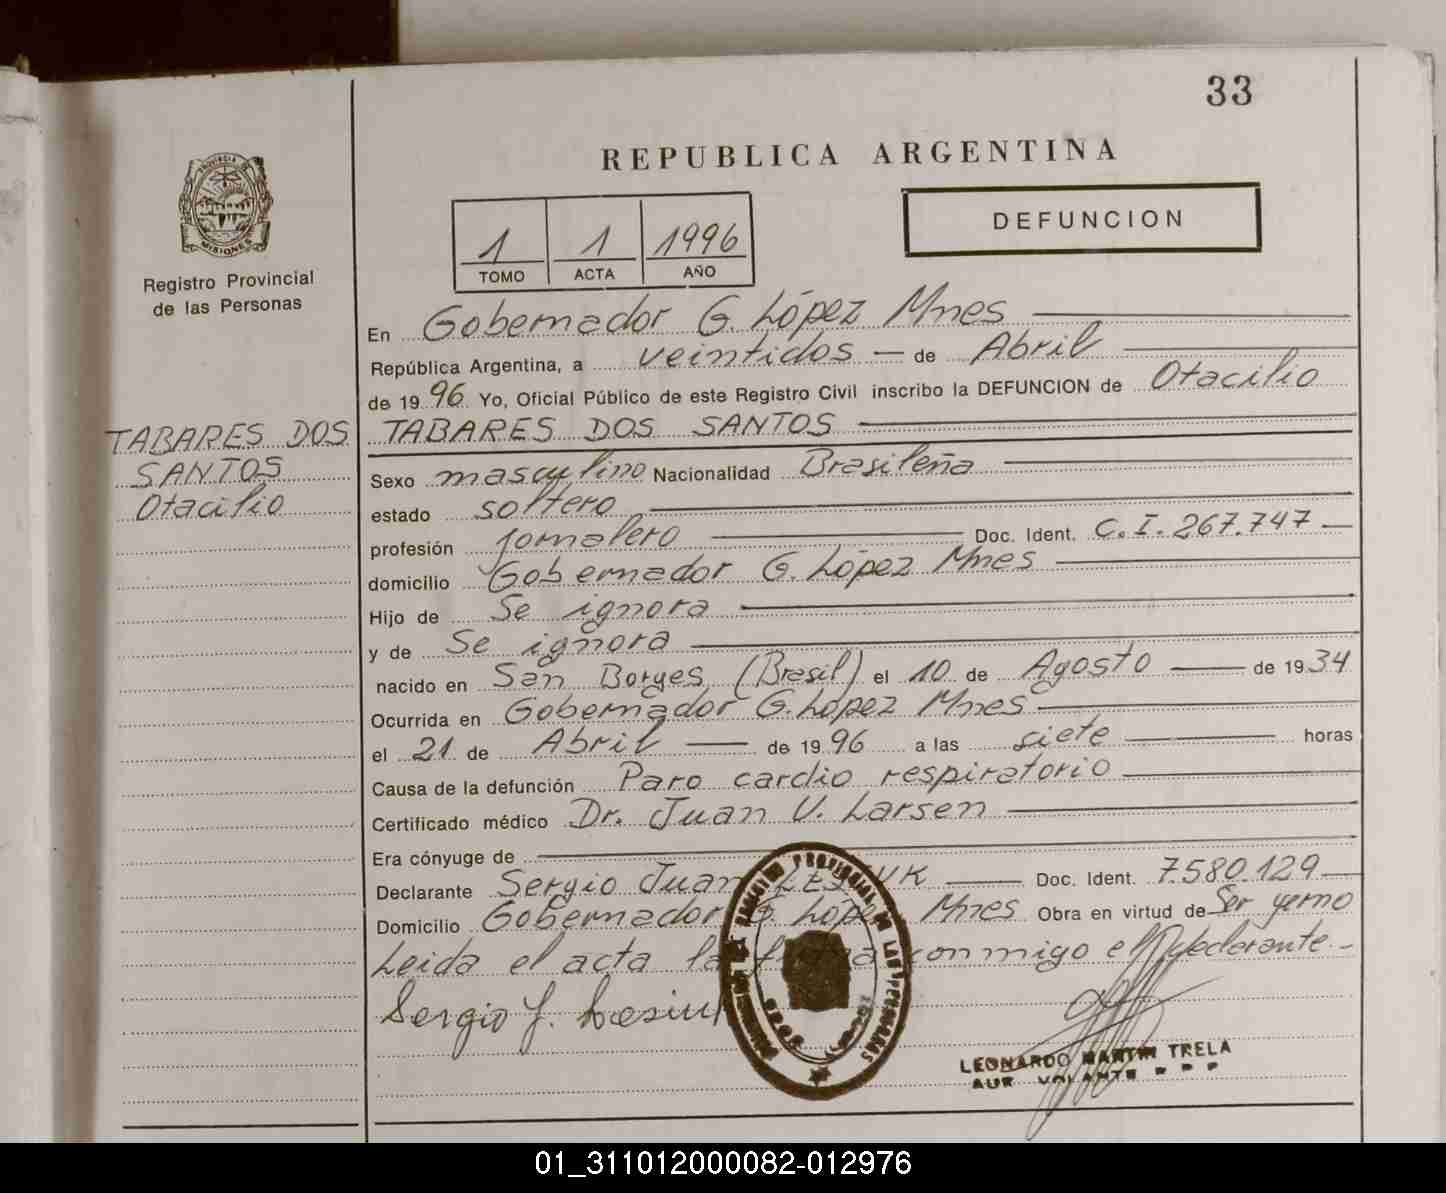 33
REPUBLICA ARGENTINA
PROVINCIA DE
MISIONES
Registro Provincial
de las Personas
1 1 1996
TOMO ACTA AÑO
DEFUNCION
En Gobernador G. López Mnes
República Argentina, a veintidos — de Abril
de 1996 Yo, Oficial Público de este Registro Civil inscribo la DEFUNCION de Otacilio
TABARES DOS SANTOS
TABARES DOS
SANTOS
Otacilio
Sexo masculino Nacionalidad Brasileña
estado soltero
profesión jornalero Doc. Ident. C.I. 267.747
domicilio Gobernador G. López Mnes
Hijo de Se ignora
y de Se ignora
nacido en San Borges (Brasil) el 10 de Agosto — de 1934
Ocurrida en Gobernador G. López Mnes
el 21 de Abril — de 1996 a las siete horas
Causa de la defunción Paro cardio respiratorio
Certificado médico Dr. Juan V. Larsen
Era cónyuge de
Declarante Sergio Juan Doc. Ident. 7.580.129
Domicilio Gobernador G. López Mnes Obra en virtud de Ser yerno
Leida el acta la firma conmigo el declarante.-
Sergio J.
REGISTRO PROVINCIAL DE LAS PERSONAS
LEONARDO MARTIN TRELA
AUX VOLANTE R P P
01_311012000082-012976